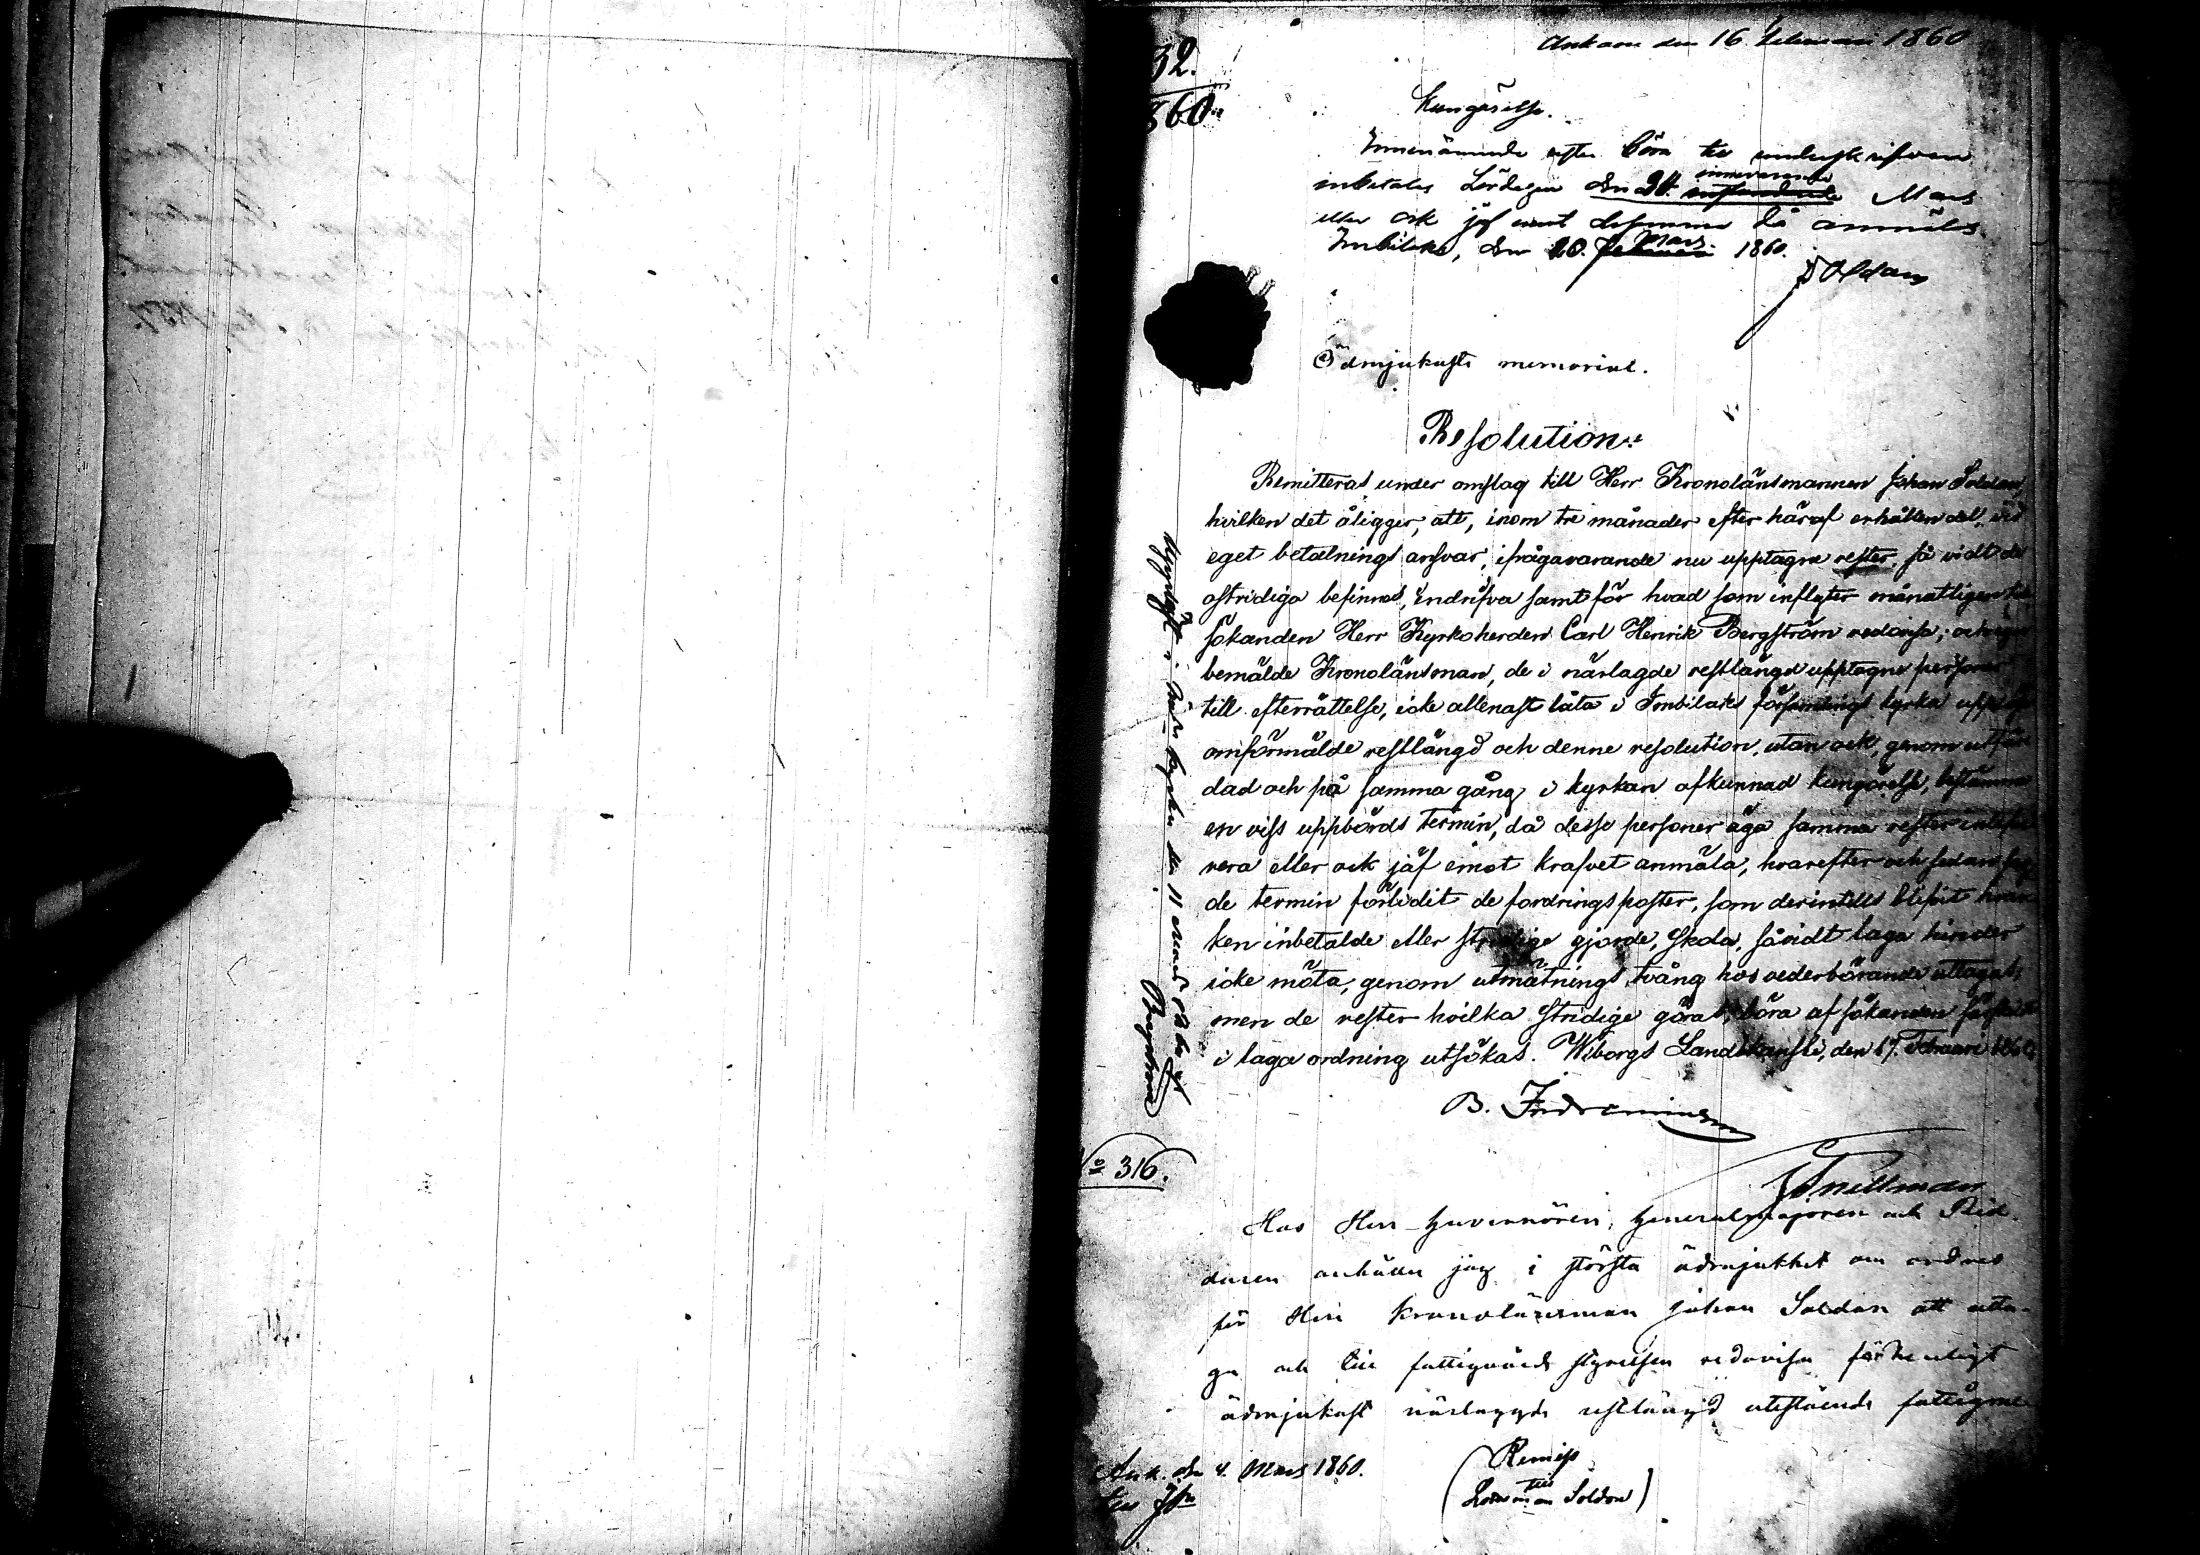 Ankom den 16 Februari 1860
32.
860.
Kungörelse.
Innenämnde rester böra till underskrifven
innevarande
inbetalas Lördagen den 24. Mars
eller ock jäf emot desamma då anmälas.
Mars
Imbilaks, den 10. Februari 1860.
J Soldan
Ödmjukaste memorial.
Resolution:
Remitteras under omslag till Herr Kronolänsmannen Johan Soldan,
hvilken det åligger, att, inom tre månader efter häraf erhållen del, vid
eget betalnings ansvar, ifrågavarande nu upptagne rester, så vidt de
ostridiga befinnas, indrifva samt för hvad som inflyter månatligen till
sökanden Herr Kyrkoherden Carl Henrik Bergström redovisa; och
bemälde Kronolänsman, de i närlagde restlängd upptagne personer
till efterrättelse, icke allenast låta i Imbilaks församlings kyrka uppläsa
omförmälde restlängd och denne resolution, utan ock, genom utfär
dad och på samma gång i kyrkan afkunnad kungörelse, bestämma
en viss uppbörds termin, då desse personer äga samma rester inleve
vera eller ock jäf emot krafvet anmäla, hvarefter och sedan
de termin förlidit de fordringsposter, som derintills blifvit hvar
ken inbetalde eller stridige gjorde, skola, såvidt laga hinder
icke möta, genom utmätnings tvång hos vederbörande uttagas,
men de rester hvilka stridige göras, böra af sökanden särskildt
i laga ordning utsökas. Wiborgs Landskansli, den 17. Februari 1860
B. Indrenius
Snellman
Uppläst i kyrka den 11 Mars
Bergström
No 316.
Hos Herr Guvernören, Generalmajoren och Rid-
daren anhåller jag i största ödmjukhet om ordres
för Herr Kronolänsman Johan Soldan att utta-
ga och till fattigvårds styrelsen redovisa förteckligt
ödmjukast närlaggde restlängd utestående
Ank. den 4. Mars 1860.
Remiss
till
Länsman Soldan